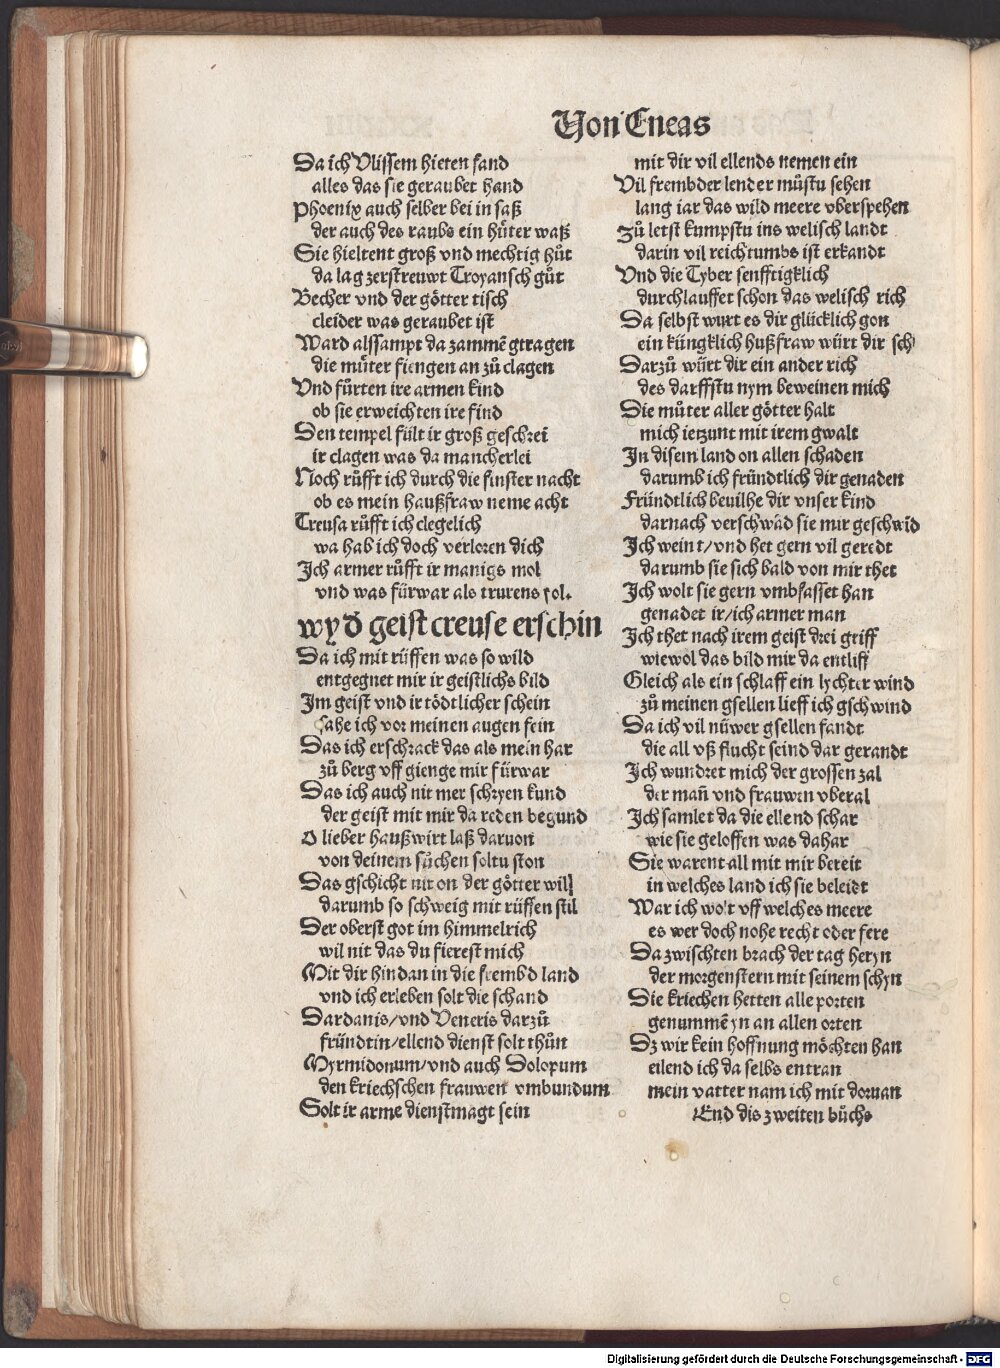 Von Eneas
Da ich Vlissem hieten fand
alles das sie geraubet hand
Phoenix auch selber bei in saß
der auch des raubs ein hüter waß
Sie hieltent groß vnd mechtig hůt
da lag zerstreuwt Troyansch gůt
Becher vnd der götter tisch
cleider was geraubet ist
Ward alssampt da zammē gtragen
die můter fiengen an zů clagen
Vnd fůrten ire armen kind
ob sie erweichten ire find
Den tempel fült ir groß geschrei
ir clagen was da mancherlei
Noch růfft ich durch die finster nacht
ob es mein haußfraw neme acht
Creusa růfft ich clegelich
wa hab ich doch verloren dich
Ich armer růfft ir manigs mol
vnd was fürwar als trurens vol.
wy d̄ geist creuse erschin
Da ich mit rüffen was so wild
entgegnet mir ir geistlichs bild
Im geist vnd ir tödtlicher schein
sahe ich vor meinen augen fein
Das ich erschrack das als mein har
zů berg vff gienge mir fürwar
Das ich auch nit mer schryen kund
der geist mit mir da reden begund
O lieber haußwirt laß daruon
von deinem sůchen soltu ston
Das gschicht nit on der götter will
darumb so schweig mit rüffen stil
Der oberst got im himmelrich
wil nit das du fierest mich
Mit dir hindan in die frembd land
vnd ich erleben solt die schand
Dardanis/vnd Veneris darzů
fründtin/ellend dienst solt thůn
Myrmidonum/vnd auch Dolopum
den kriechschen frauwen vmbundum
Solt ir arme dienstmagt sein
mit dir vil ellends nemen ein
Vil frembder lender můstu sehen
lang iar das wild meere vberspehen
Zů letst kumpstu ins welisch landt
darin vil reichtumbs ist erkandt
Vnd die Tyber senfftigklich
durchlauffet schon das welisch rich
Da selbst wurt es dir glücklich gon
ein küngklich hußfraw würt dir sch
Darzů würt dir ein ander rich
des darffstu nym beweinen mich
Die můter aller götter halt
mich ietzunt mit irem gwalt
In disem land on allen schaden
darumb ich fründtlich dir genaden
Fründtlich beuilhe dir vnser kind
darnach verschwād sie mir geschwīd
Ich weint/vnd het gern vil geredt
darumb sie sich bald von mir thet
Ich wolt sie gern vmbfasset han
genadet ir/ich armer man
Ich thet nach irem geist drei griff
wiewol das bild mir da entliff
Gleich als ein schlaff ein lychter wind
zů meinen gsellen lieff ich gschwind
Da ich vil nüwer gsellen fandt
die all vß flucht seind dar gerandt
Ich wundret mich der grossen zal
der mañ vnd frauwen vberal
Ich samlet da die ellend schar
wie sie geloffen was dahar
Sie warent all mit mir bereit
in welches land ich sie beleidt
War ich wolt vff welches meere
es wer doch nohe recht oder fere
Da zwischten brach der tag heryn
der morgenstern mit seinem schyn
Die kriechen hetten alle porten
genummē yn an allen orten
Dz wir kein hoffnung möchten han
eilend ich da selbs entran
mein vatter nam ich mit doruan
End dis zweiten bůchs
Digitalisierung gefördert durch die Deutsche Forschungsgemeinschaft -
DFG